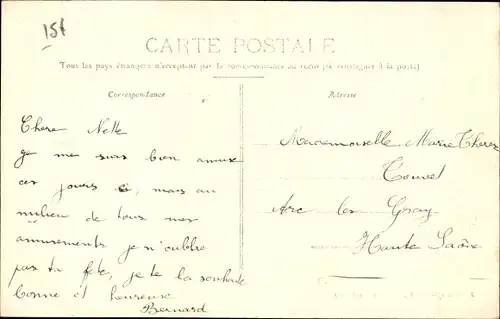 15f
CARTE POSTALE
Tous les pays étrangers n'acceptent pas la correspondance au recto (se renseigner à la poste)
Correspondance
Adresse
Chere Nette
je me suis bien amusé
ces jours ci, mais au
milieu de tous mes
amusements je n'oublie
pas ta fête, je te la souhaite
bonne et heureuse
Bernard
Mademoiselle Marie Therese
Arc les Gray
Haute Saône